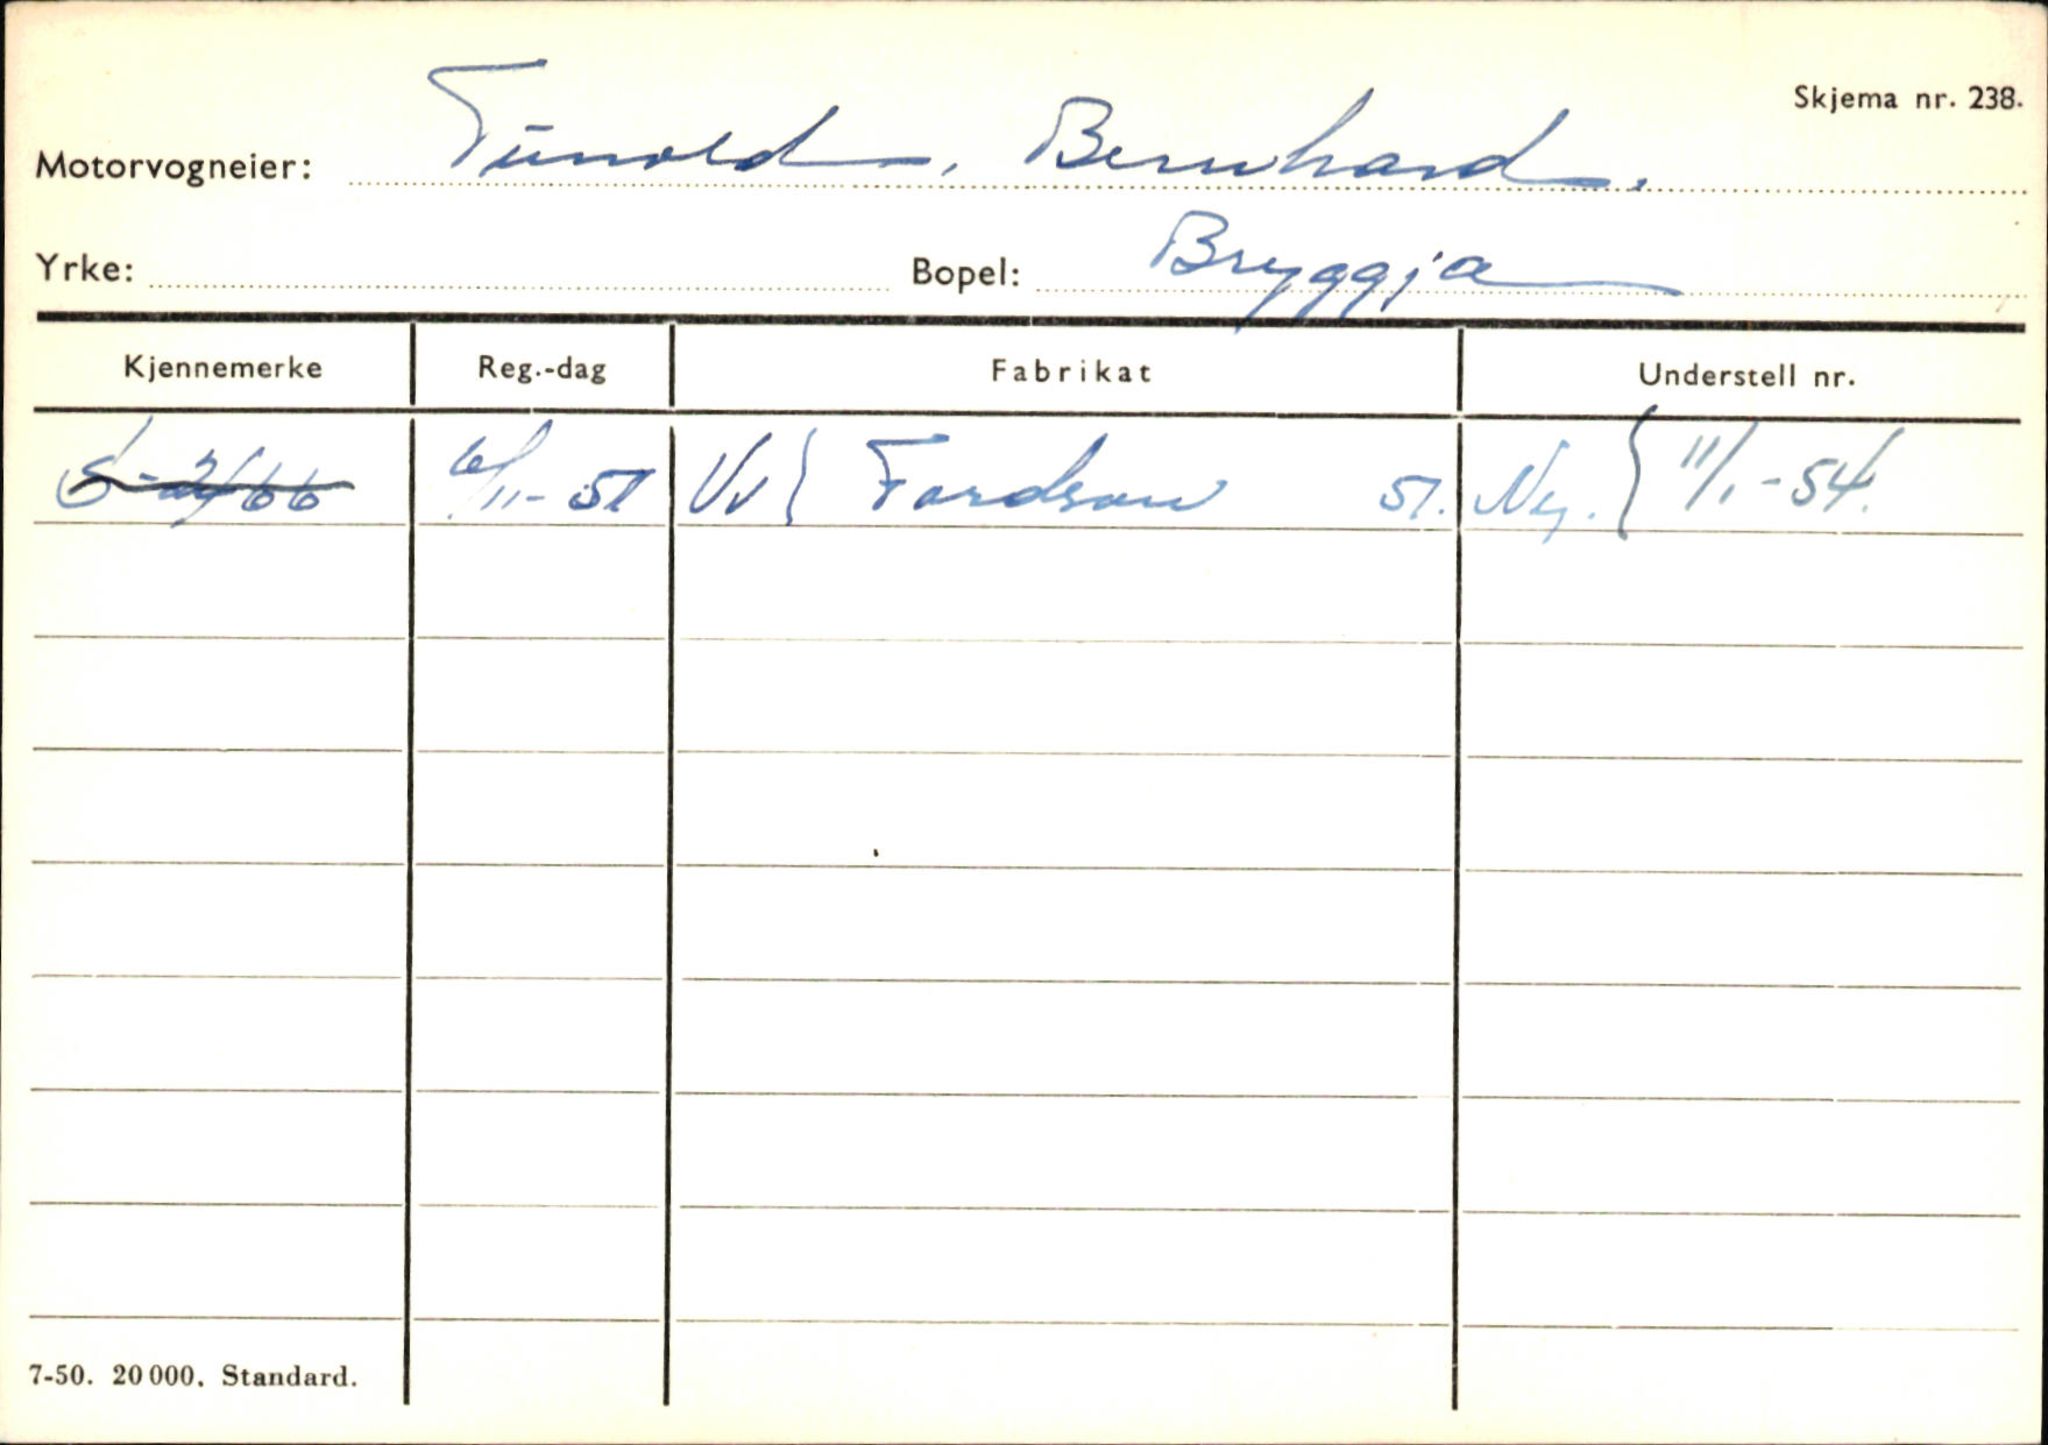 Skjema nr. 238.
Motorvogneier: Tunold, Bernhard.
Yrke: Bopel: Bryggja
Kjennemerke Reg.-dag Fabrikat Understell nr.
S-2466 6/11-51 Vv { Fordson 51. Ny. { 11/1-54.
7-50. 20 000. Standard.